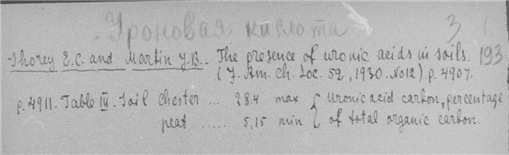 Уроновая кислота 3 1.
Shorey E.C. and Martin J.B.. The presence of uronic acids in soils. 193
(J. Am. Ch. Soc. 52, 1930. No12) p. 4907.
p. 4911. Table III. Soil Chester ... 28.4 max { Uronic acid carbon, percentage
peat ..... 5,15 min { of total organic carbon.